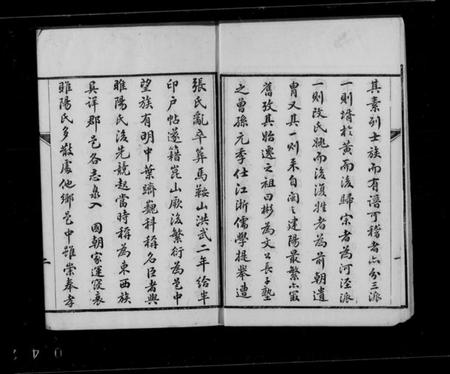 其素列士族而有譜可稽者亦分三派
一則壻於黄而後歸宗者為河涇派
一則改氏姚而後復姓者為前朝遺
胄又其一則來自閩之建陽最繁亦最
舊攷其始遷之祖曰彬為文公長子塾
之曾孫元季仕江浙儒學提舉遭
張氏亂卒葬馬鞍山洪武二年給半
印户帖遂籍崑山厥後繁衍為邑中
望族有明中葉躋觀科稱名臣者與
睢陽氏後先競起當時稱為東西族
具詳郡邑各志乘入 國朝家運寖衰
睢陽氏多散處他鄉邑中雖崇奉孝